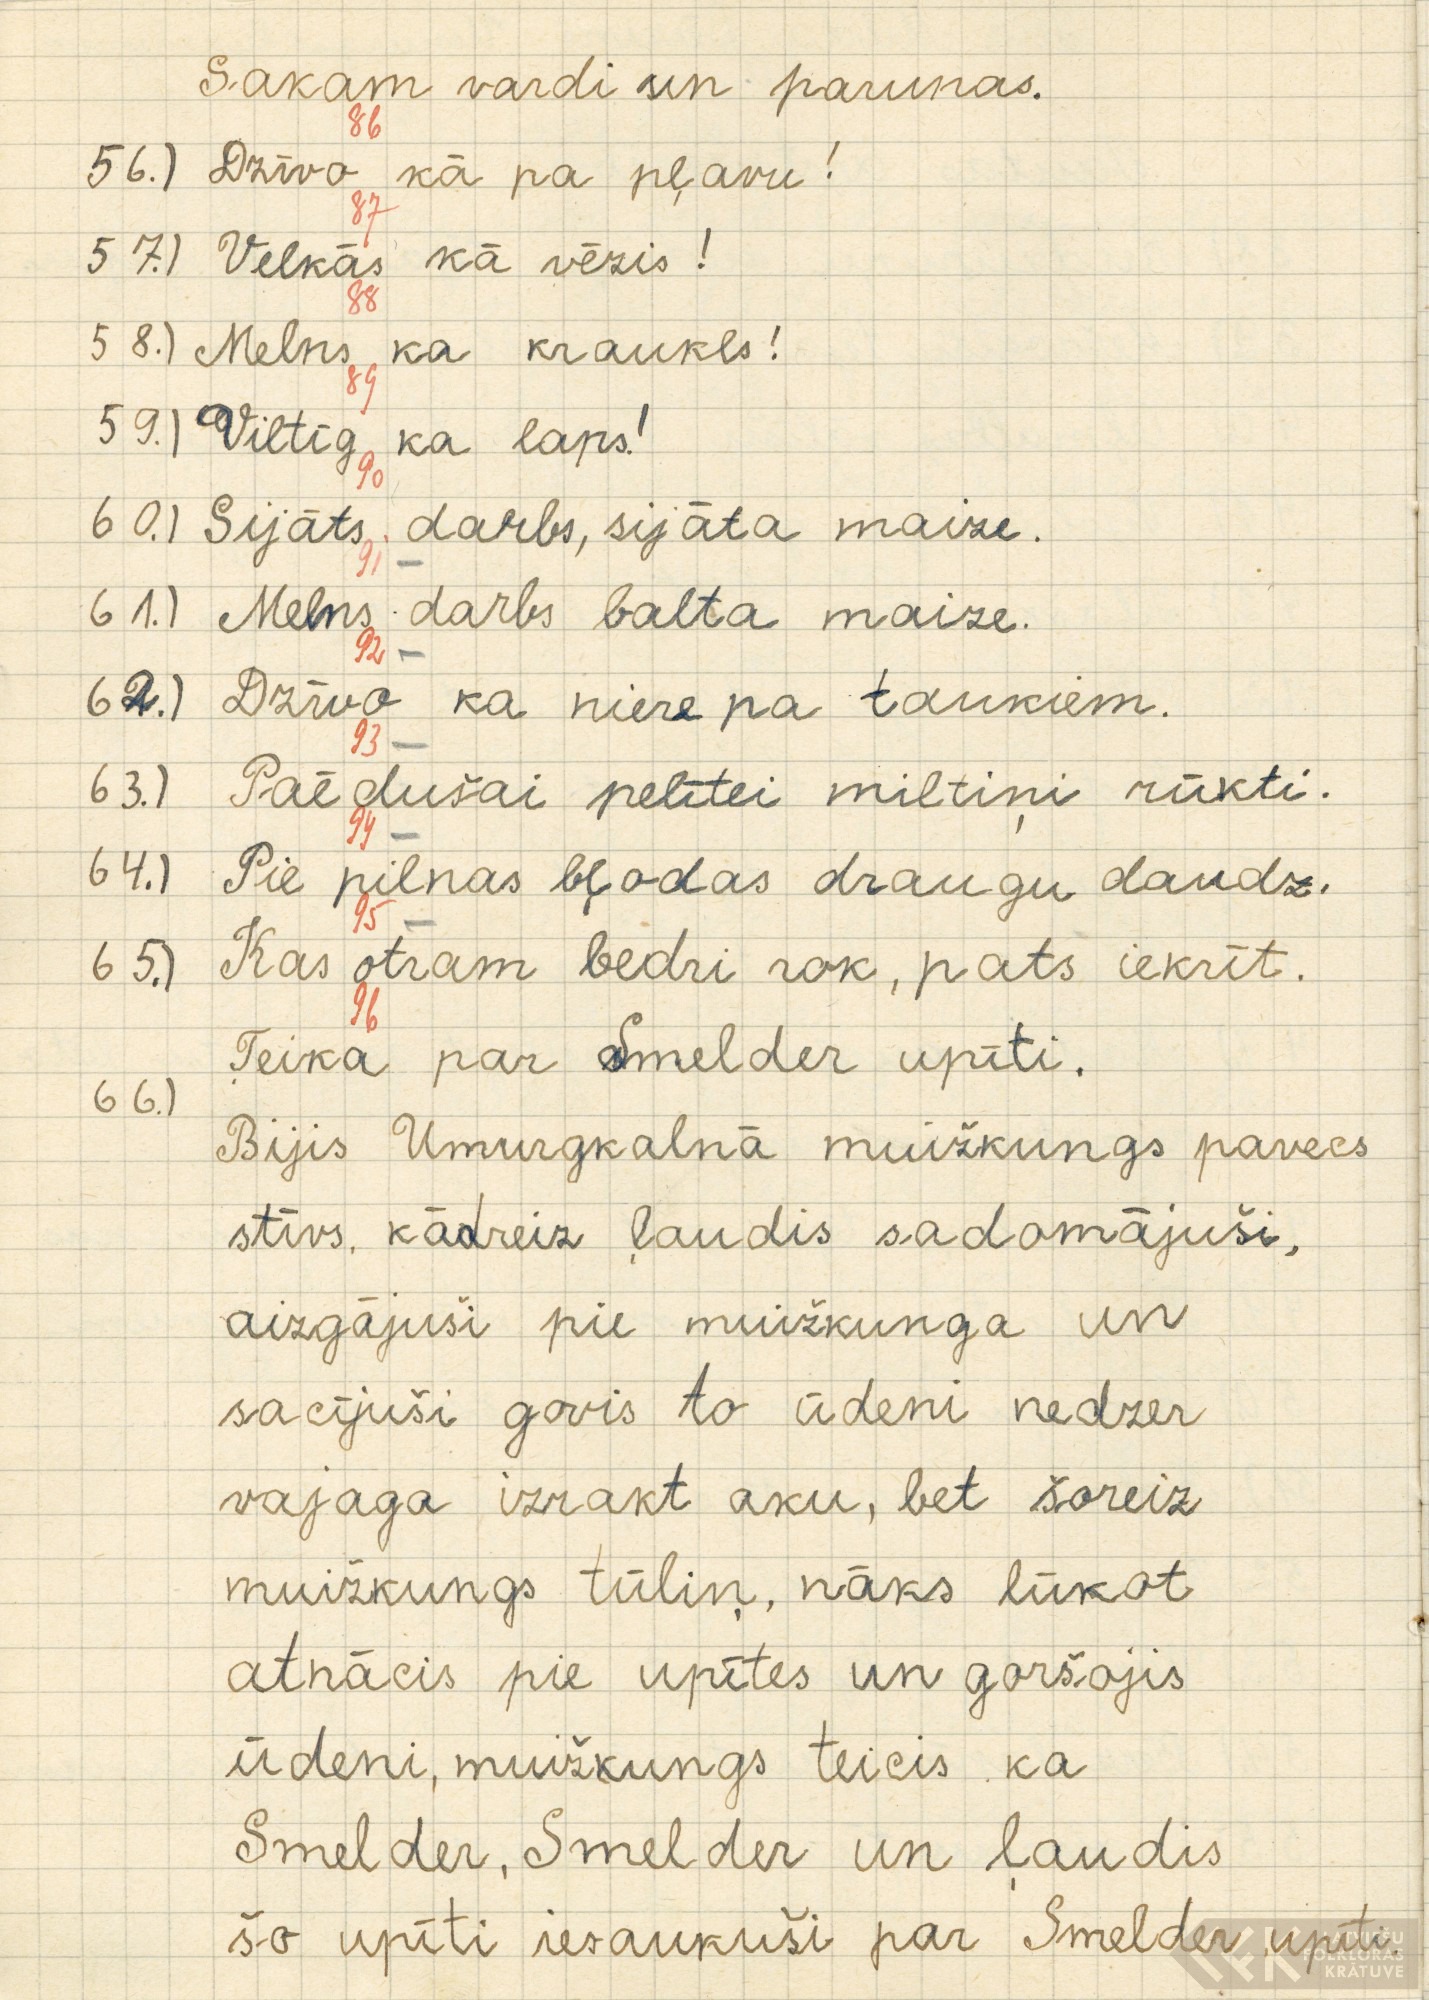 Sakam vardi un parunas.
86
56.) Dzīvo kā pa pļavu!
87
57.) Velkās kā vēzis!
88
58.) Melns ka kraukls!
89
59.) Viltīg ka laps!
90
60.) Sijāts darbs, sijāta maize.
91 –
61.) Melns darbs balta maize.
92 –
62.) Dzīvo ka niere pa taukiem.
93 –
63.) Paēdušai pelītei miltiņi rūkti.
94 –
64.) Pie pilnas bļodas draugu daudz.
95 –
65.) Kas otram bedri rok, pats iekrīt.
96
Teika par Smelder upīti.
66.)
Bijis Umurgkalnā muižkungs pavecs
stīvs, kādreiz ļaudis sadomājuši,
aizgājuši pie muižkunga un
sacījuši govis to ūdeni nedzer
vajaga izrakt aku, bet šoreiz
muižkungs tūliņ, nāks lūkot
atnācis pie upītes un goršojis
ūdeni, muižkungs teicis ka
Smelder, Smelder un ļaudis
šo upīti iesaukuši par Smelder upīti.
LATVIEŠU
LFK FOLKLORAS
KRĀTUVE